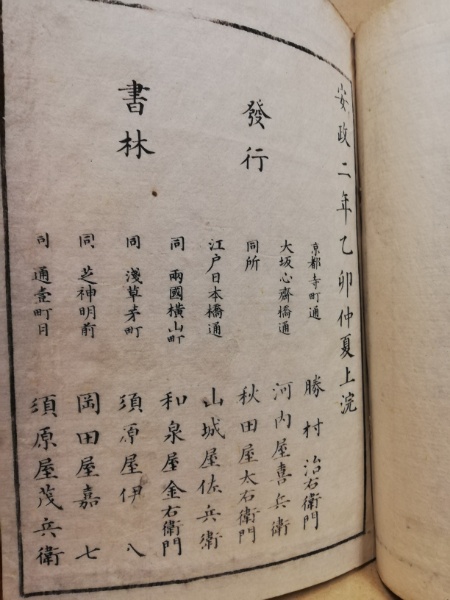 安政二年乙卯仲夏上浣
發行
書林
京都寺町通 勝村治右衛門
大坂心齋橋通 河内屋喜兵衛
同所 秋田屋太右衛門
江戸日本橋通 山城屋佐兵衛
同 兩國横山町 和泉屋金右衛門
同 淺草茅町 須原屋伊八
同 芝神明前 岡田屋嘉七
同 通壹町目 須原屋茂兵衛